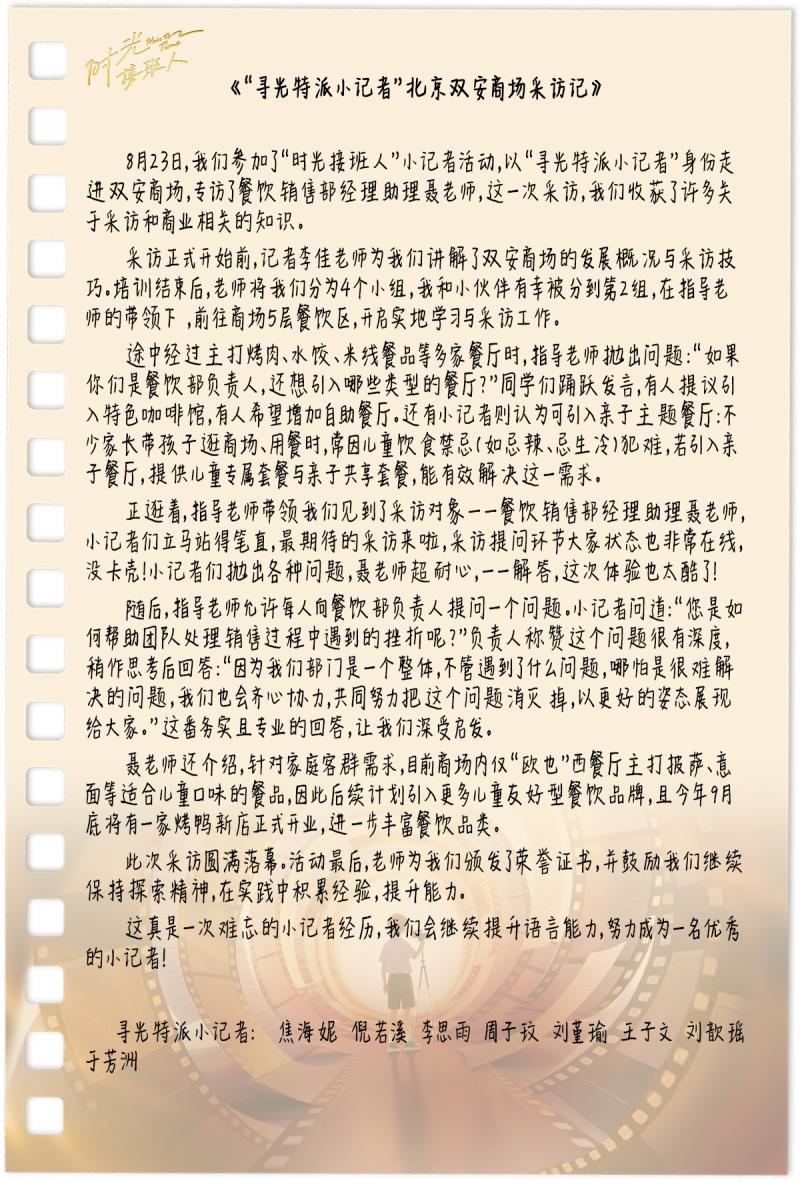 时光
接班人
《“寻光特派小记者”北京双安商场采访记》
8月23日,我们参加了“时光接班人”小记者活动,以“寻光特派小记者”身份走
进双安商场,专访了餐饮销售部经理助理聂老师,这一次采访,我们收获了许多关
于采访和商业相关的知识。
采访正式开始前,记者李佳老师为我们讲解了双安商场的发展概况与采访技
巧。培训结束后,老师将我们分为4个小组,我和小伙伴有幸被分到第2组,在指导老
师的带领下,前往商场5层餐饮区,开启实地学习与采访工作。
途中经过主打烤肉、水饺、米线餐品等多家餐厅时,指导老师抛出问题:“如果
你们是餐饮部负责人,还想引入哪些类型的餐厅?”同学们踊跃发言,有人提议引
入特色咖啡馆,有人希望增加自助餐厅。还有小记者则认为可引入亲子主题餐厅:不
少家长带孩子逛商场、用餐时,常因儿童饮食禁忌(如忌辣、忌生冷)犯难,若引入亲
子餐厅,提供儿童专属套餐与亲子共享套餐,能有效解决这一需求。
正逛着,指导老师带领我们见到了采访对象——餐饮销售部经理助理聂老师,
小记者们立马站得笔直,最期待的采访来啦,采访提问环节大家状态也非常在线,
没卡壳!小记者们抛出各种问题,聂老师超耐心,一一解答,这次体验也太酷了!
随后,指导老师允许每人向餐饮部负责人提问一个问题。小记者问道:“您是如
何帮助团队处理销售过程中遇到的挫折呢?”负责人称赞这个问题很有深度,
稍作思考后回答:“因为我们部门是一个整体,不管遇到了什么问题,哪怕是很难解
决的问题,我们也会齐心协力,共同努力把这个问题消灭掉,以更好的姿态展现
给大家。”这番务实且专业的回答,让我们深受启发。
聂老师还介绍,针对家庭客群需求,目前商场内仅“欧也”西餐厅主打披萨、意
面等适合儿童口味的餐品,因此后续计划引入更多儿童友好型餐饮品牌,且今年9月
底将有一家烤鸭新店正式开业,进一步丰富餐饮品类。
此次采访圆满落幕。活动最后,老师为我们颁发了荣誉证书,并鼓励我们继续
保持探索精神,在实践中积累经验,提升能力。
这真是一次难忘的小记者经历,我们会继续提升语言能力,努力成为一名优秀
的小记者!
寻光特派小记者: 焦海妮 倪若溪 李思雨 周子玟 刘堇瑜 王子文 刘歆瑶
于芳洲